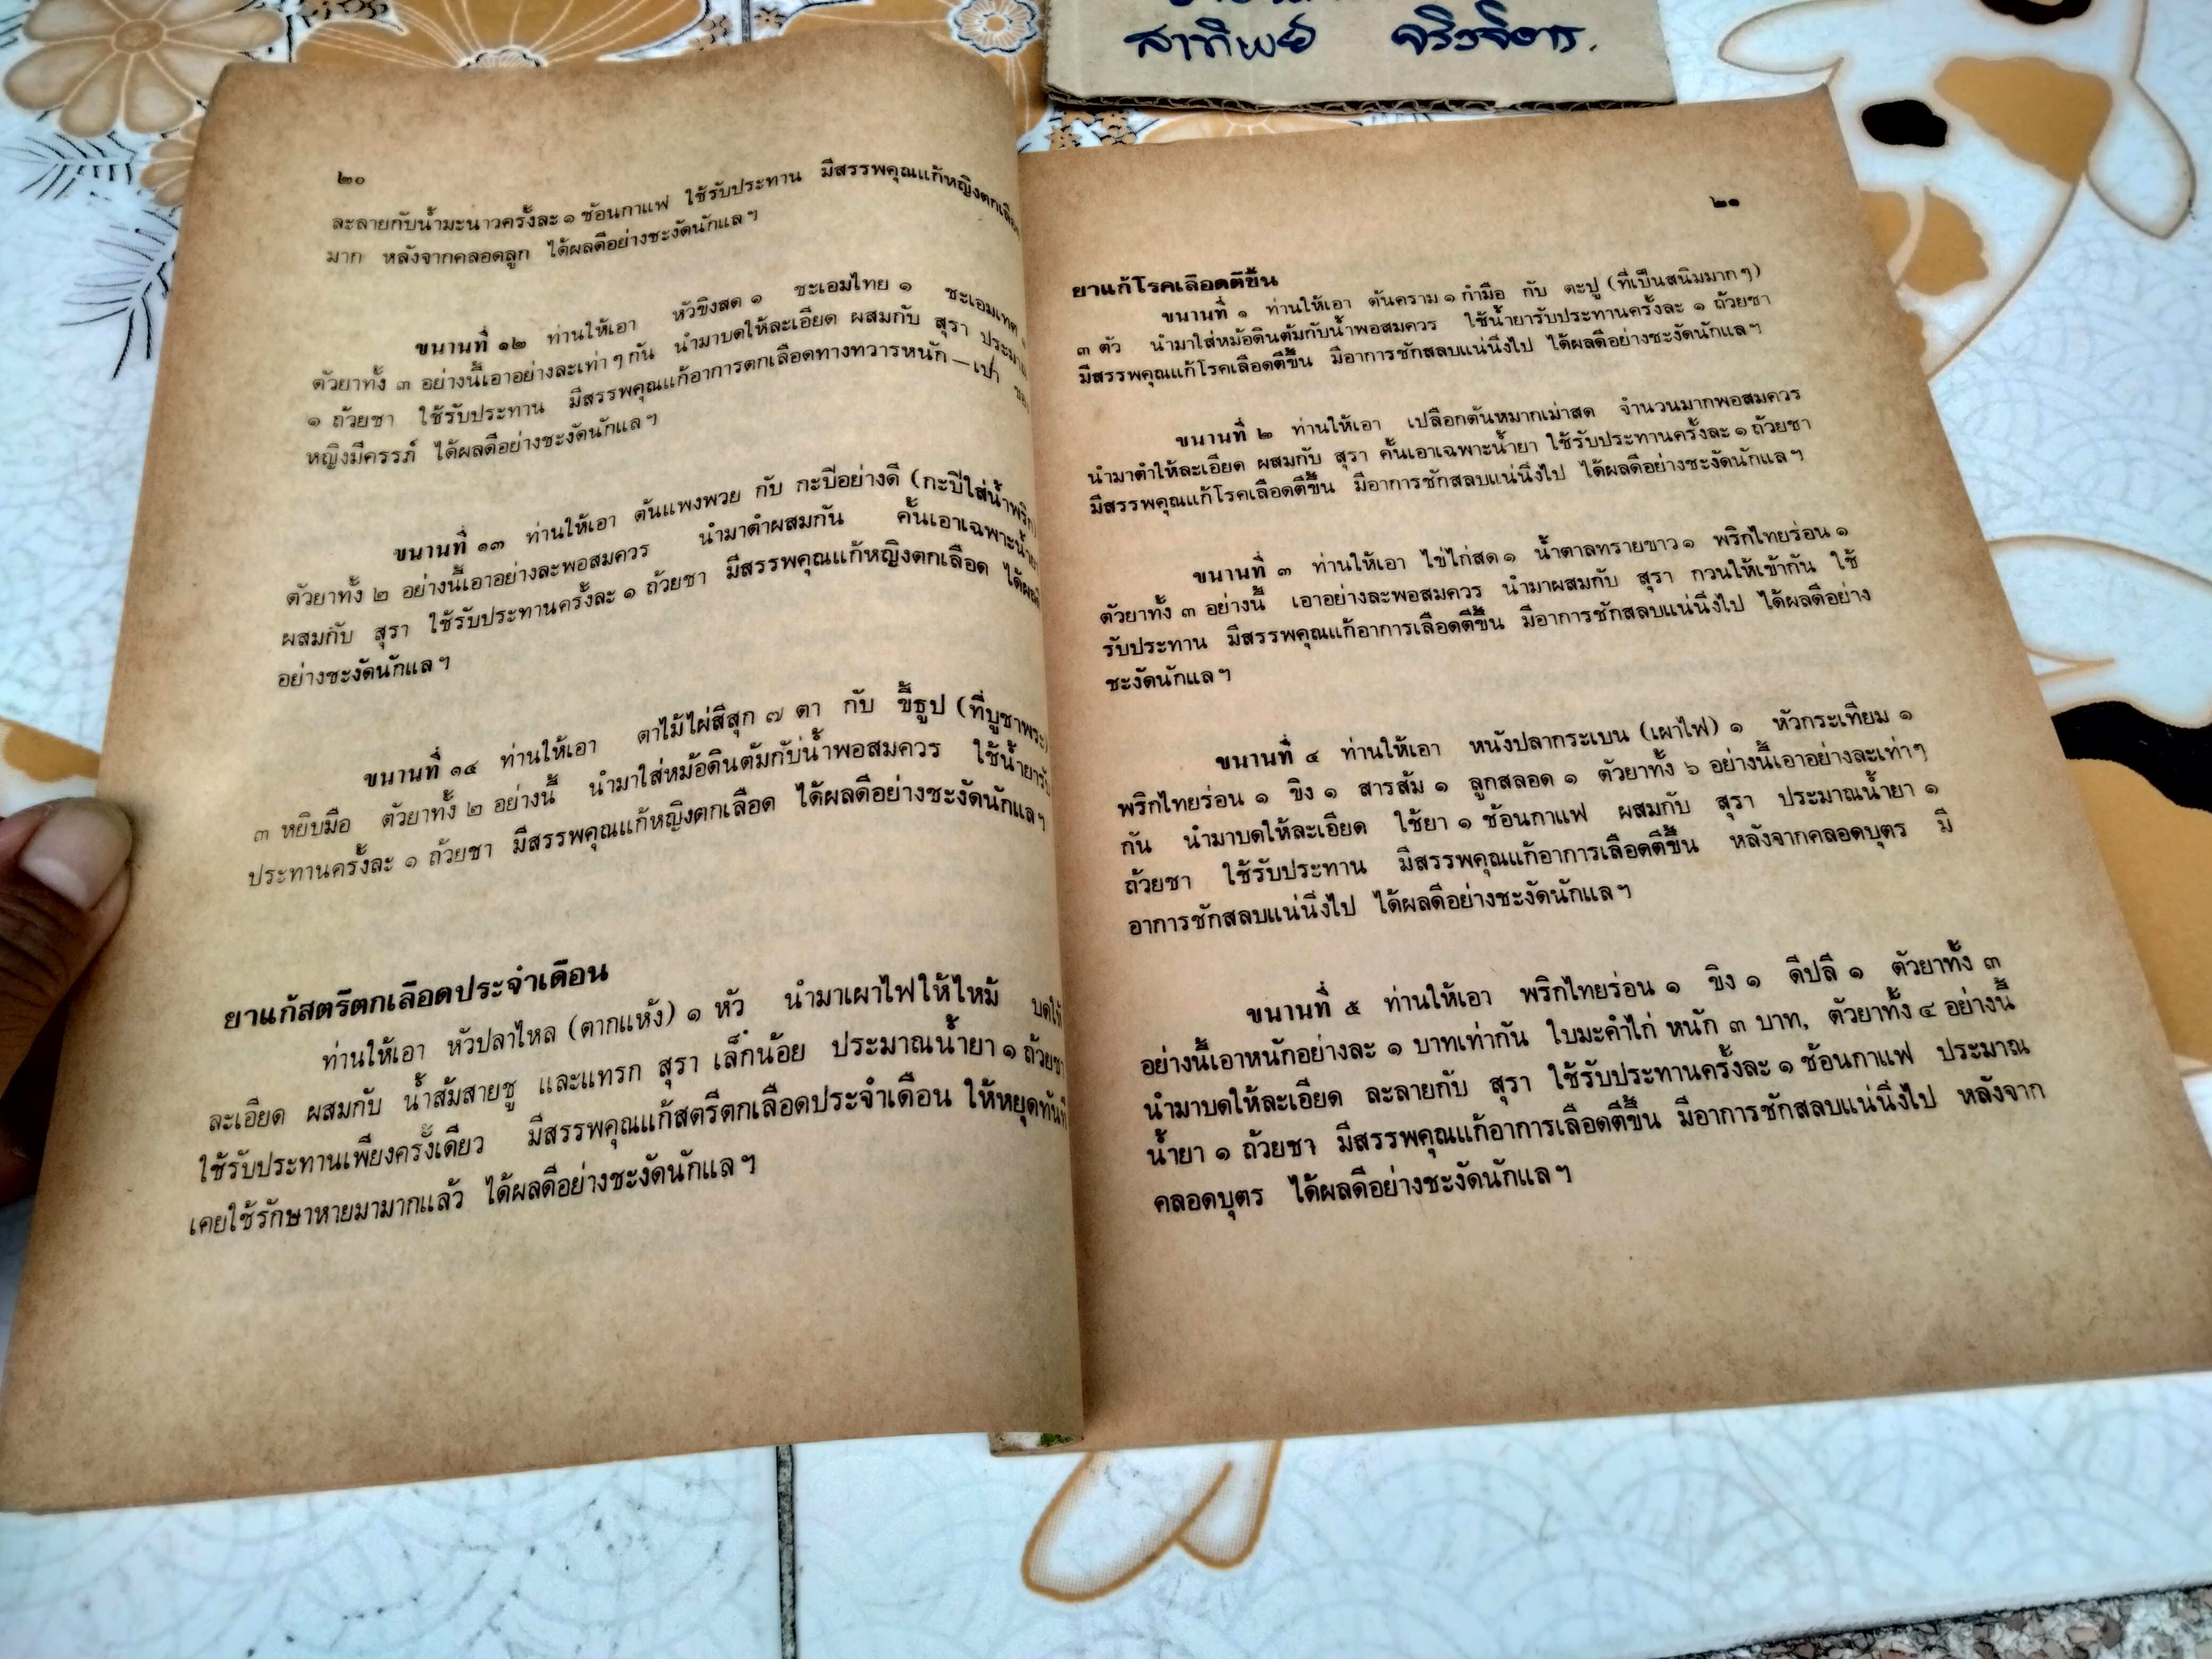 สาทิพย์ จริงจิตร.
๒๐
ละลายกับน้ำมะนาวครั้งละ ๑ ช้อนกาแฟ ใช้รับประทาน มีสรรพคุณแก้หญิงตกเลือด
มาก หลังจากคลอดลูก ได้ผลดีอย่างชะงัดนักแลฯ
ขนานที่ ๑๒ ท่านให้เอา หัวขิงสด ๑ ชะเอมไทย ๑ ชะเอมเทศ ๑
ตัวยาทั้ง ๓ อย่างนี้เอาอย่างละเท่าๆกัน นำมาบดให้ละเอียด ผสมกับ สุรา ประมาณ
๑ ถ้วยชา ใช้รับประทาน มีสรรพคุณแก้อาการตกเลือดทางทวารหนัก—เบา ของ
หญิงมีครรภ์ ได้ผลดีอย่างชะงัดนักแลฯ
ขนานที่ ๑๓ ท่านให้เอา ต้นแพงพวย กับ กะปิอย่างดี (กะปิใส่น้ำพริก)
ตัวยาทั้ง ๒ อย่างนี้เอาอย่างละพอสมควร นำมาตำผสมกัน คั้นเอาเฉพาะน้ำยา
ผสมกับ สุรา ใช้รับประทานครั้งละ ๑ ถ้วยชา มีสรรพคุณแก้หญิงตกเลือด ได้ผลดี
อย่างชะงัดนักแลฯ
ขนานที่ ๑๔ ท่านให้เอา ตาไม้ไผ่สีสุก ๗ ตา กับ ขี้ธูป (ที่บูชาพระ)
๓ หยิบมือ ตัวยาทั้ง ๒ อย่างนี้ นำมาใส่หม้อดินต้มกับน้ำพอสมควร ใช้น้ำยารับ
ประทานครั้งละ ๑ ถ้วยชา มีสรรพคุณแก้หญิงตกเลือด ได้ผลดีอย่างชะงัดนักแลฯ
ยาแก้สตรีตกเลือดประจำเดือน
ท่านให้เอา หัวปลาไหล (ตากแห้ง) ๑ หัว นำมาเผาไฟให้ไหม้ บดให้
ละเอียด ผสมกับ น้ำส้มสายชู และแทรก สุรา เล็กน้อย ประมาณน้ำยา ๑ ถ้วยชา
ใช้รับประทานเพียงครั้งเดียว มีสรรพคุณแก้สตรีตกเลือดประจำเดือน ให้หยุดทันที
เคยใช้รักษาหายมามากแล้ว ได้ผลดีอย่างชะงัดนักแลฯ
๒๑
ยาแก้โรคเลือดตีขึ้น
ขนานที่ ๑ ท่านให้เอา ต้นคราม ๑ กำมือ กับ ตะปู (ที่เป็นสนิมมากๆ)
๓ ตัว นำมาใส่หม้อดินต้มกับน้ำพอสมควร ใช้น้ำยารับประทานครั้งละ ๑ ถ้วยชา
มีสรรพคุณแก้โรคเลือดตีขึ้น มีอาการชักสลบแน่นิ่งไป ได้ผลดีอย่างชะงัดนักแลฯ
ขนานที่ ๒ ท่านให้เอา เปลือกต้นหมากเม่าสด จำนวนมากพอสมควร
นำมาตำให้ละเอียด ผสมกับ สุรา คั้นเอาเฉพาะน้ำยา ใช้รับประทานครั้งละ ๑ ถ้วยชา
มีสรรพคุณแก้โรคเลือดตีขึ้น มีอาการชักสลบแน่นิ่งไป ได้ผลดีอย่างชะงัดนักแลฯ
ขนานที่ ๓ ท่านให้เอา ไข่ไก่สด ๑ น้ำตาลทรายขาว ๑ พริกไทยร่อน ๑
ตัวยาทั้ง ๓ อย่างนี้ เอาอย่างละพอสมควร นำมาผสมกับ สุรา กวนให้เข้ากัน ใช้
รับประทาน มีสรรพคุณแก้อาการเลือดตีขึ้น มีอาการชักสลบแน่นิ่งไป ได้ผลดีอย่าง
ชะงัดนักแลฯ
ขนานที่ ๔ ท่านให้เอา หนังปลากระเบน (เผาไฟ) ๑ หัวกระเทียม ๑
พริกไทยร่อน ๑ ขิง ๑ สารส้ม ๑ ลูกสลอด ๑ ตัวยาทั้ง ๖ อย่างนี้เอาอย่างละเท่าๆ
กัน นำมาบดให้ละเอียด ใช้ยา ๑ ช้อนกาแฟ ผสมกับ สุรา ประมาณน้ำยา ๑
ถ้วยชา ใช้รับประทาน มีสรรพคุณแก้อาการเลือดตีขึ้น หลังจากคลอดบุตร มี
อาการชักสลบแน่นิ่งไป ได้ผลดีอย่างชะงัดนักแลฯ
ขนานที่ ๕ ท่านให้เอา พริกไทยร่อน ๑ ขิง ๑ ดีปลี ๑ ตัวยาทั้ง ๓
อย่างนี้เอาหนักอย่างละ ๑ บาทเท่ากัน ใบมะคำไก่ หนัก ๓ บาท, ตัวยาทั้ง ๔ อย่างนี้
นำมาบดให้ละเอียด ละลายกับ สุรา ใช้รับประทานครั้งละ ๑ ช้อนกาแฟ ประมาณ
น้ำยา ๑ ถ้วยชา มีสรรพคุณแก้อาการเลือดตีขึ้น มีอาการชักสลบแน่นิ่งไป หลังจาก
คลอดบุตร ได้ผลดีอย่างชะงัดนักแลฯ